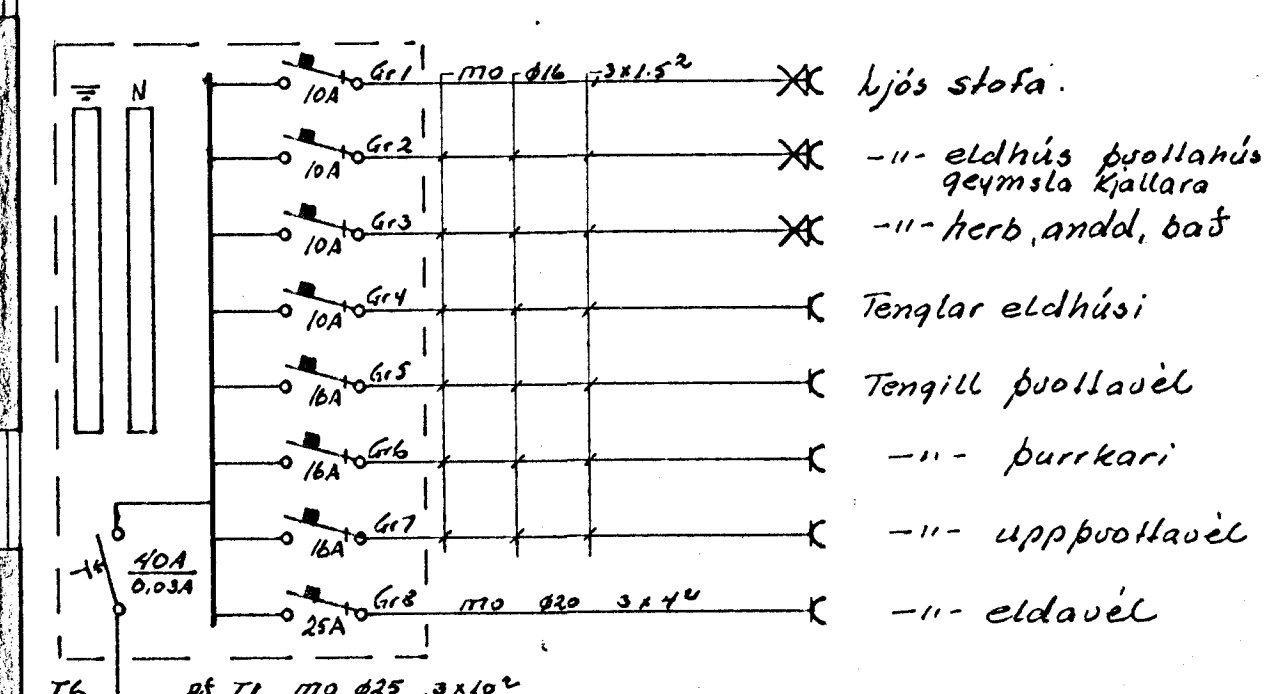 N
Gr1 mo ø16 3x1.5² Ljós stofa.
10A
Gr2 -"- eldhús þvottahús
10A geymsla kjallara
Gr3 -"- herb, andd, bað
10A
Gr4 Tenglar eldhúsi
10A
Gr5 Tengill þvottavél
16A
Gr6 -"- þurrkari
16A
Gr7 -"- uppþvottavél
16A
40A
0,03A
Gr8 mo ø20 3x4² -"- eldavél
25A
T6 pf T1 mo ø25 3x10²